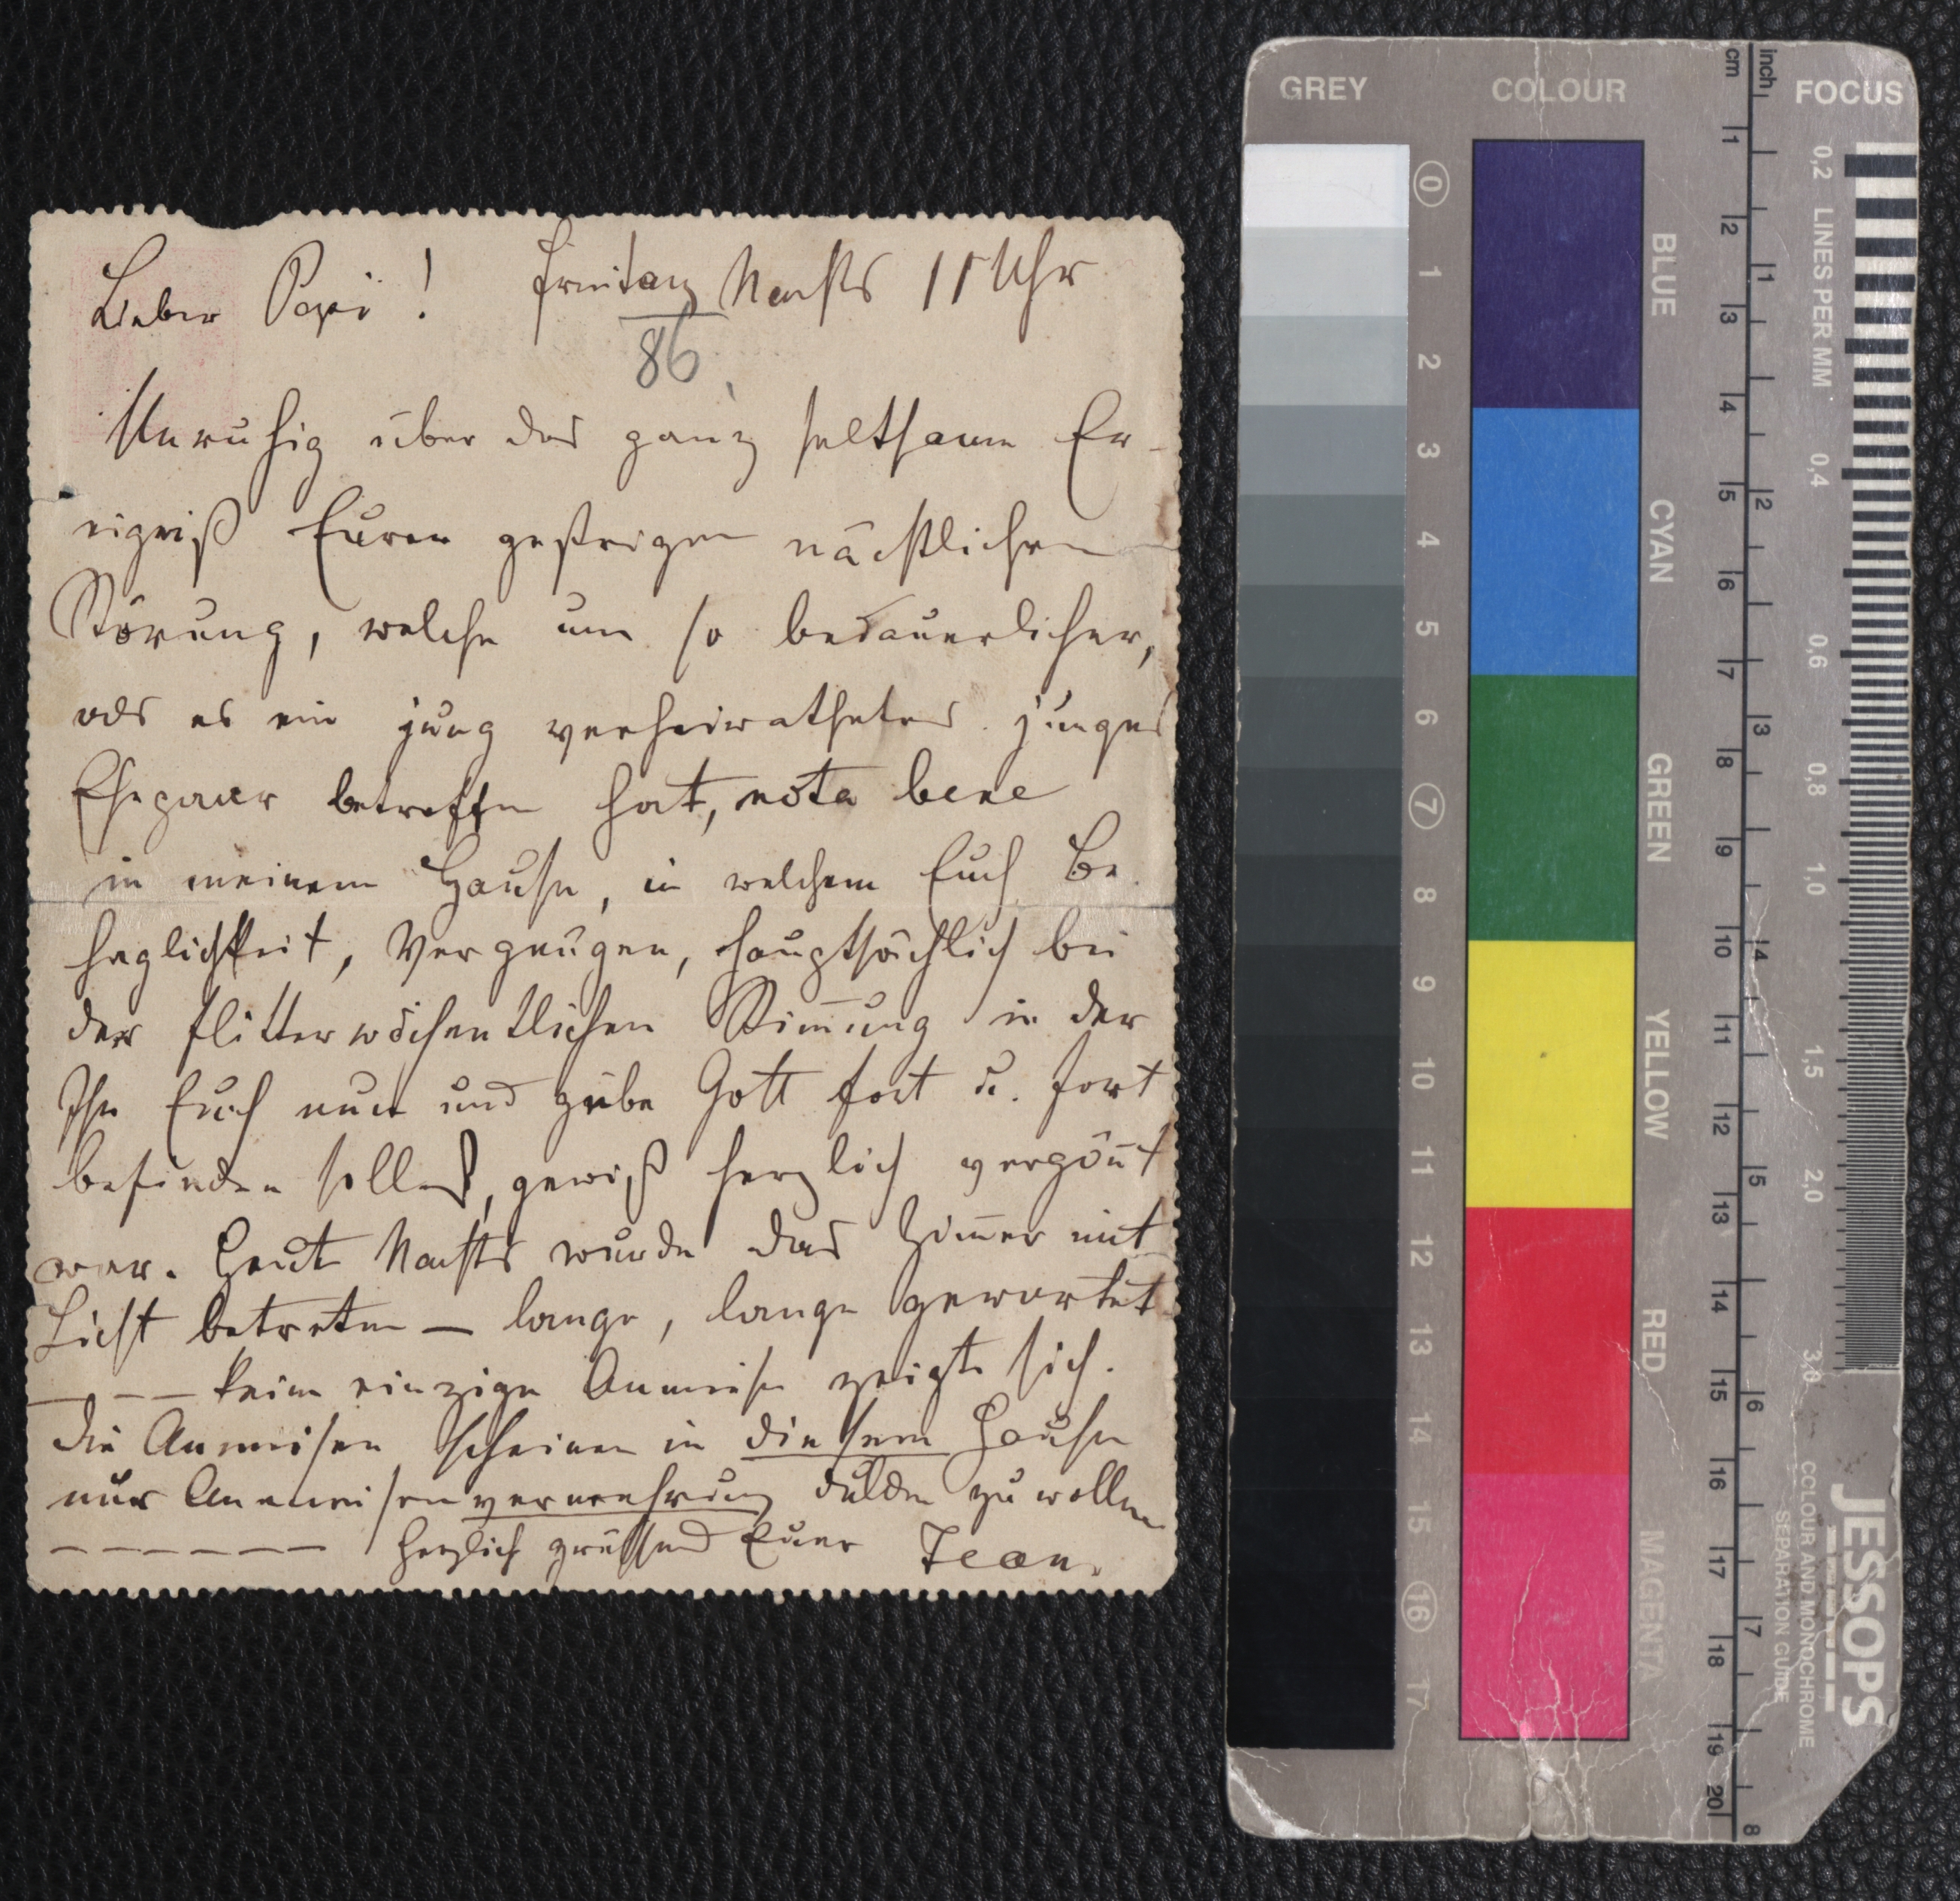 Lieber Pepi! Freitag Nachts 11 Uhr
86
Unruhig über das ganz seltsame Er-
eigniß Eurer gestrigen nächtlichen
Störung, welche um so bedauerlicher,
als es ein jung verheirathetes junges
Ehepaar betroffen hat, nota bene
in meinem Hause, in welchem Euch Be
haglichkeit, Vergnügen, hauptsächlich bei
der flitterwöchentlichen Stimmung in der
Ihr Euch nun und gebe Gott fort u. fort
befinden sollet, gewiß herzlich vergönnt
war. Heut Nachts wurde das Zimmer mit
Licht betreten – lange, lange gewartet
– – – keine einzige Anmeise zeigte sich.
die Anmeisen scheinen in diesem Hause
nur Anmeisenvermehrung dulden zu wollen
– – – – – – Herzlich grüssend Euer Jean.
GREY COLOUR FOCUS
cm inch
0 1 2 3 4 5 6 7 8 9 10 11 12 13 14 15 16 17
BLUE
CYAN
GREEN
YELLOW
RED
MAGENTA
1 2 3 4 5 6 7 8 9 10 11 12 13 14 15 16 17 18 19 20
1 2 3 4 5 6 7 8
0,2 LINES PER MM 0,4 0,6 0,8 1,0 1,5 2,0 3,0
JESSOPS
COLOUR AND MONOCHROME
SEPARATION GUIDE